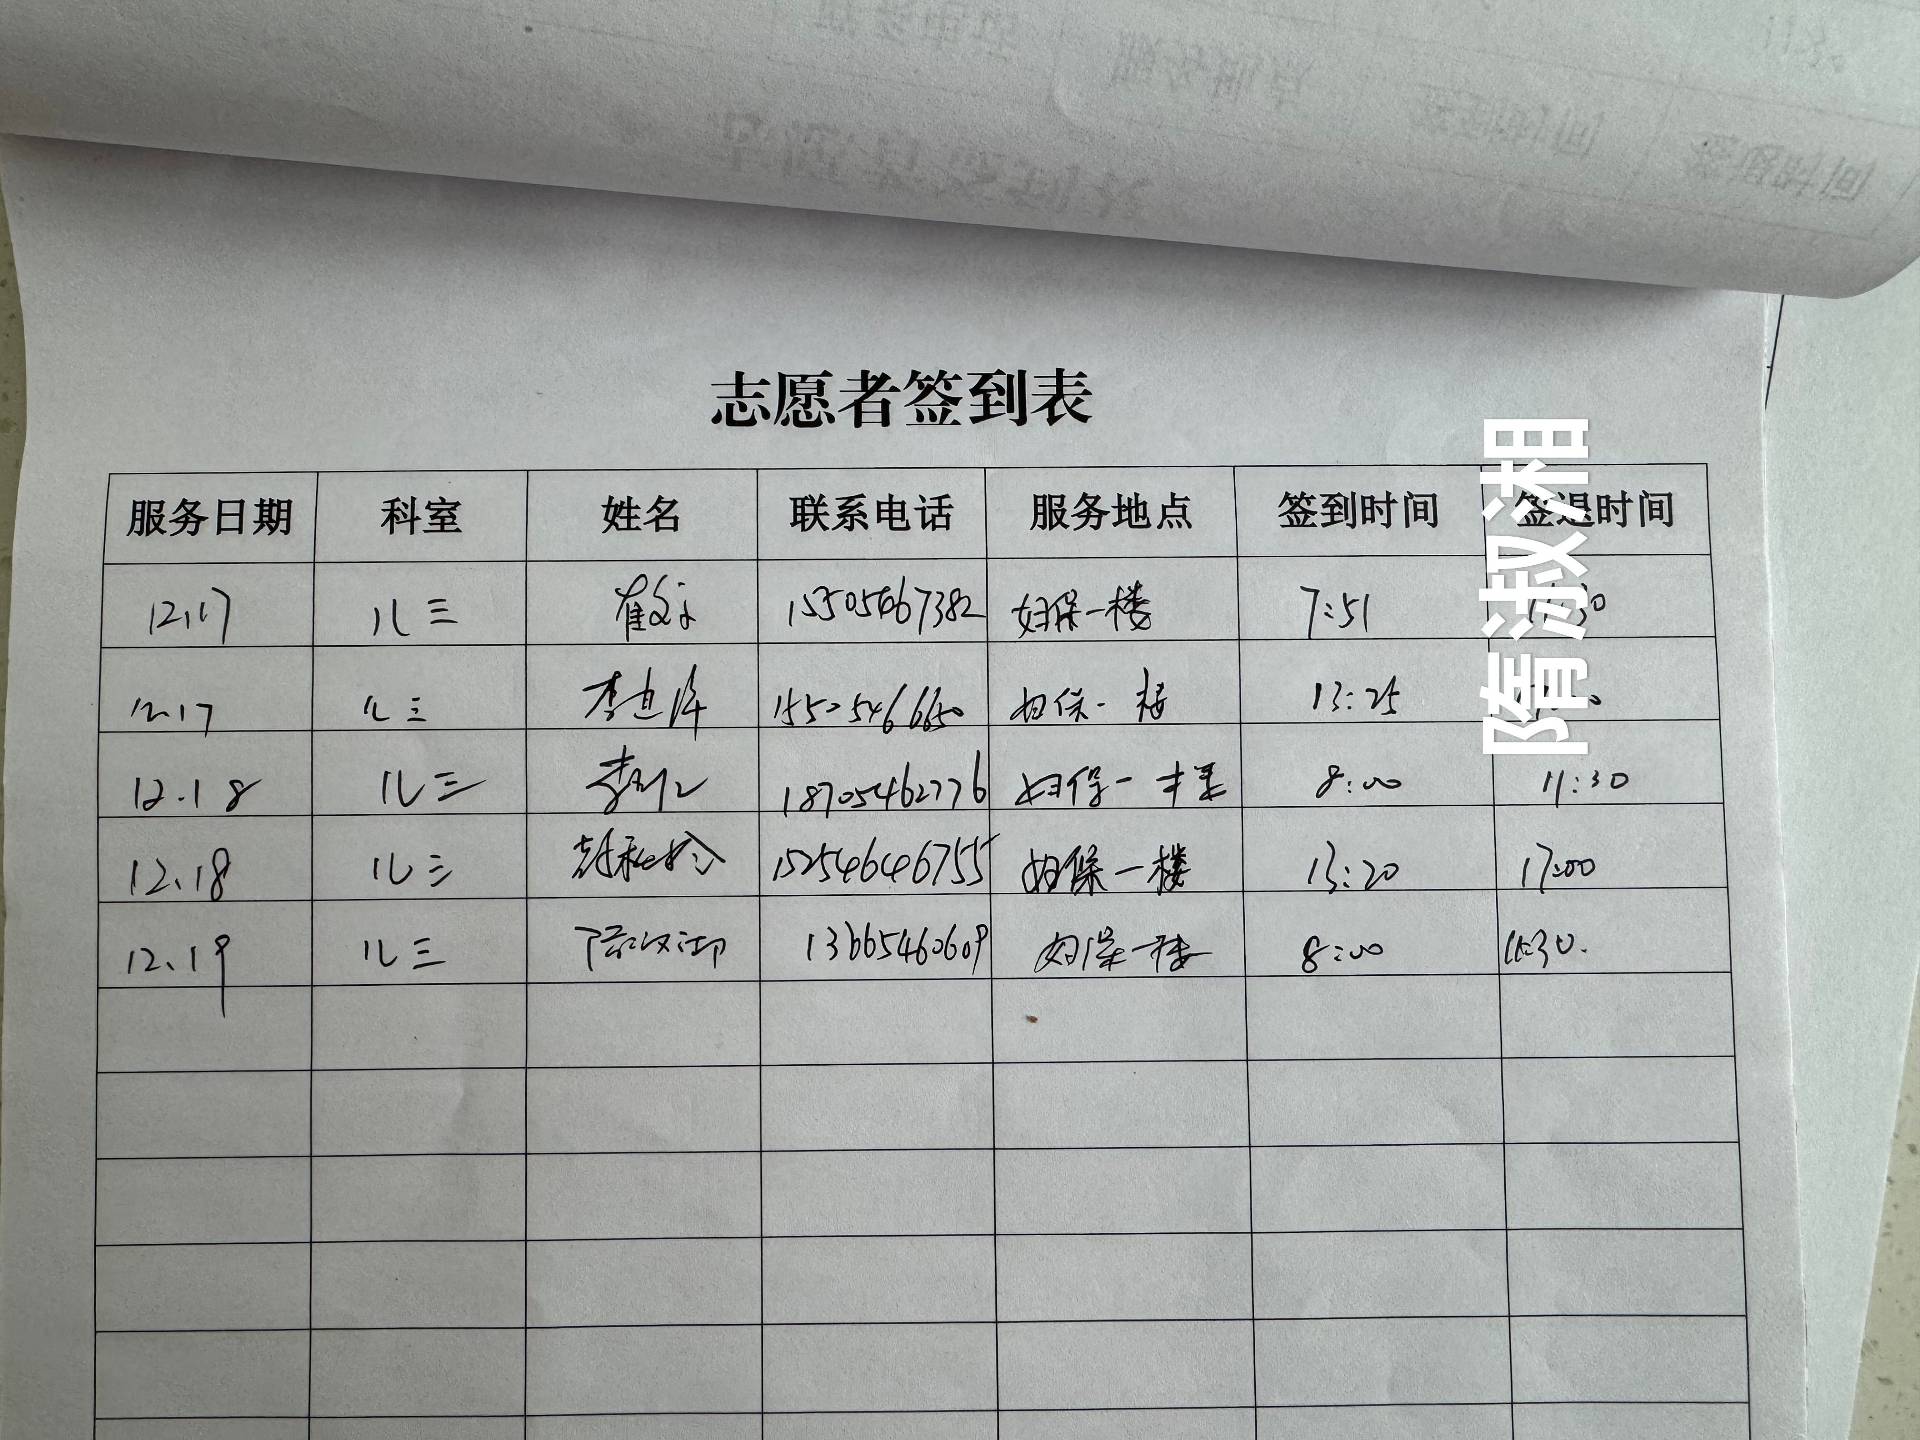 志愿者签到表
服务日期 科室 姓名 联系电话 服务地点 签到时间 签退时间
12.17 儿三 15305467382 妇保一楼 7:51
12.17 儿三 妇保一楼 13:25
12.18 儿三 18705462776 妇保一楼 8:00 11:30
12.18 儿三 15254646755 妇保一楼 13:20 17:00
12.19 儿三 13665460609 妇保一楼 8:00 11:30.
隋淑湘